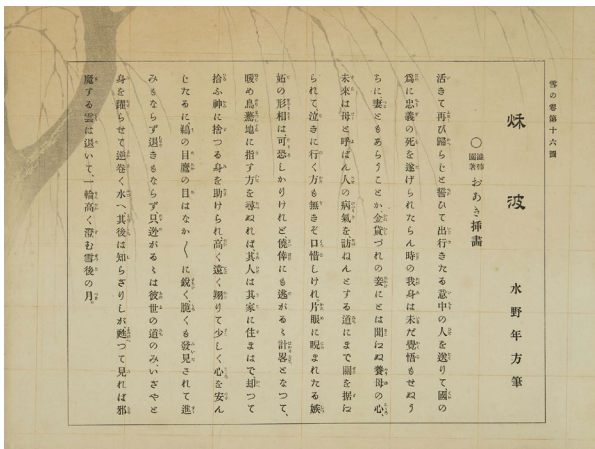 雪の雫第十六圖
秌波
水野年方筆
○ おあき挿畵
活きて再び歸らじと誓ひて出行きたる意中の人を送りて、國の
爲に忠義の死を遂げられたらん時の我身は未だ覺悟もせぬう
ちに妻ともあらうことか金貨づれの妾にとは聞えぬ養母の心、
未來は母と呼ばん人の病氣を訪ねんとする道にまで關を据ね
られて、泣きに行く方も無きぞ口惜しけれ、片眼に睨まれたる嫉
妬の形相は可恐しかりけれど、僥倖にも逃がるゝ計畧となつて、
暖め鳥驀地に指す方を尋ぬれば其人は其家に住まはで却つて
拾ふ神に捨つる身を助けられ高く遠く翔りて少しく心を安ん
じたるに、鵜の目鷹の目はなか〱に鋭く脆くも發見されて進
みもならず退きもならず、只遁がるゝは彼世の道のみ、いざやと
身を躍らせて逆卷く水へ其後は知らざりしが甦つて見れば邪
魔する雲は退いて、一輪高く澄む雪後の月。